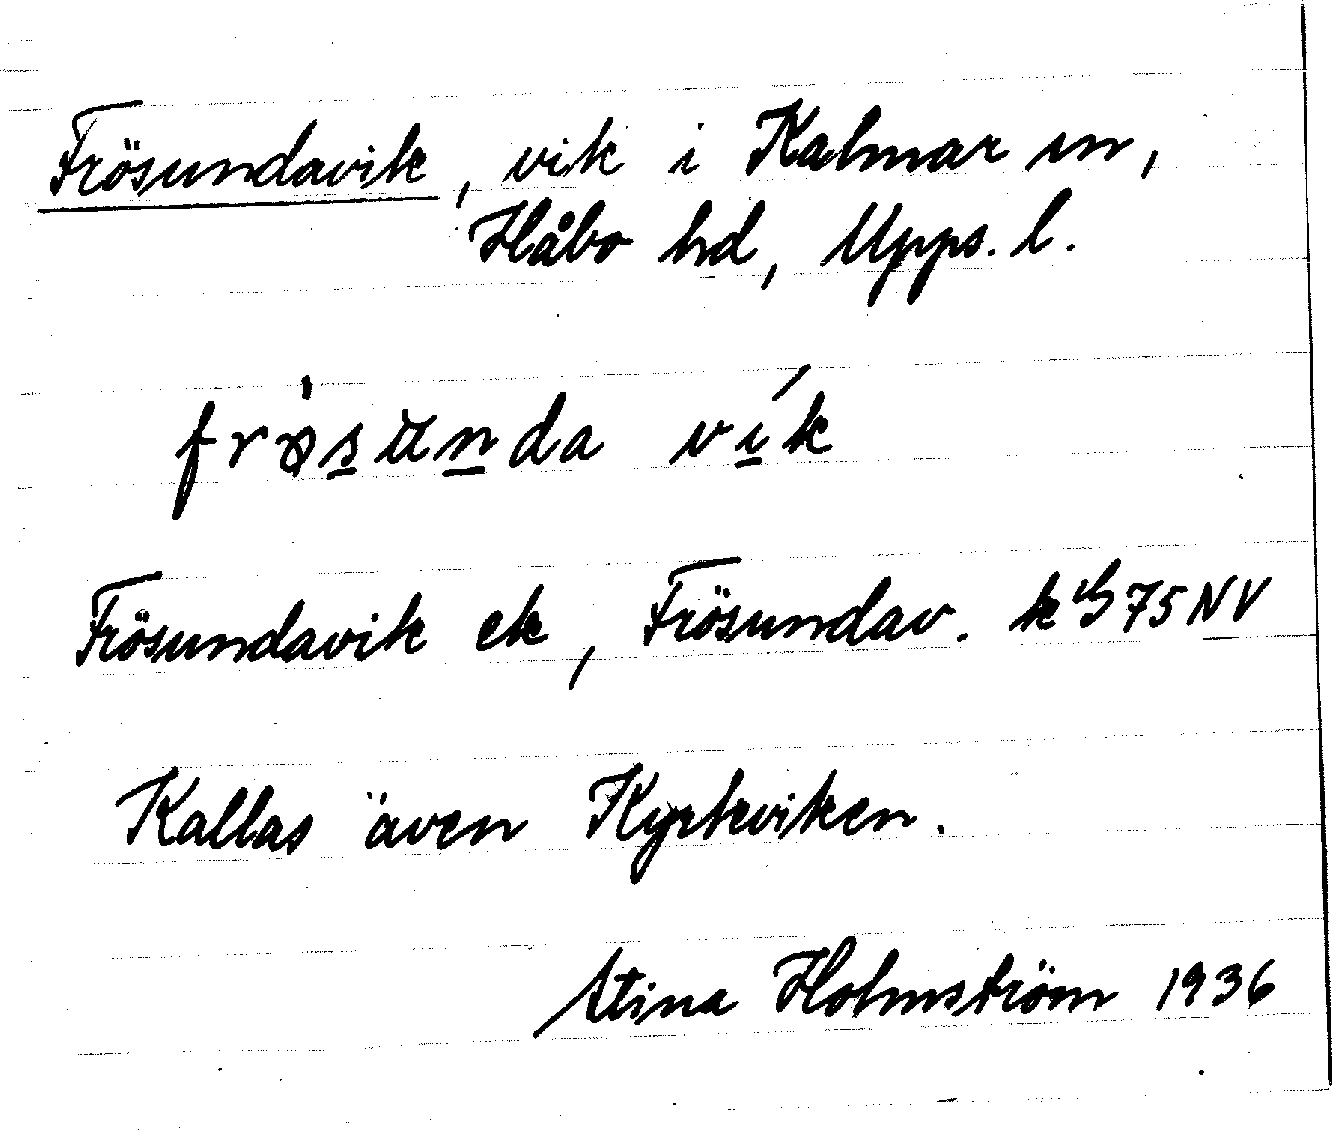 Frösundavik, vik i Kalmar sn,
Håbo hd, Upps. l.
frøsunda vik
Frösundavik ek, Frösundav. k G 75 NV
Kallas även Kyrkviken.
Stina Holmström 1936